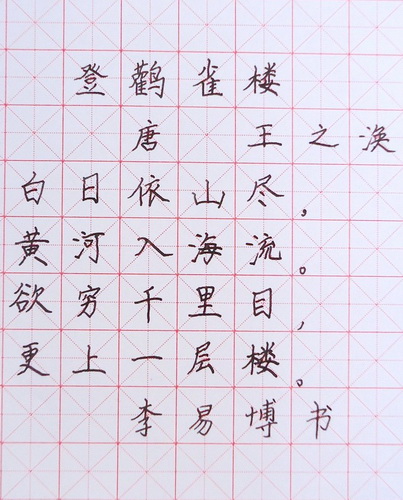 登鹳雀楼
唐 王之涣
白日依山尽，
黄河入海流。
欲穷千里目，
更上一层楼。
李易博书